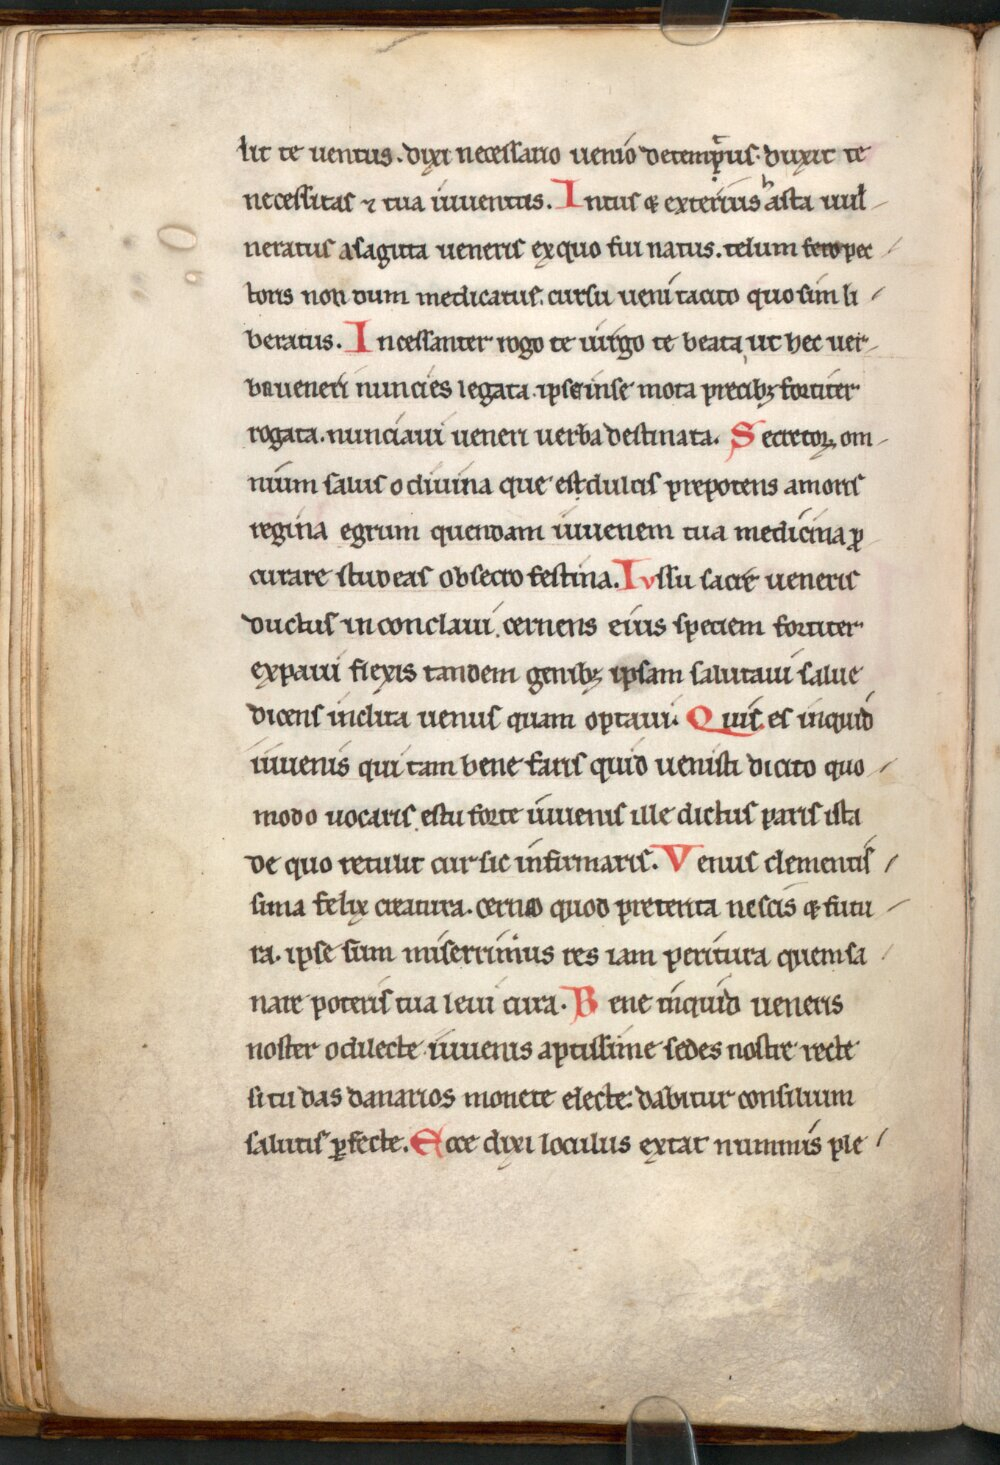 lit te uentus. dixi necessario uenio detemp̄tus. duxit te
necessitas ⁊ tua iuuentus. Intus & exterius hasta uul-
neratus a sagitta ueneris ex quo fui natus. telum fero pec-
toris non dum medicatus. cursu ueni tacito quo sim li-
beratus. Incessanter rogo te uirgo te beata ut hec uer-
ba ueneri nuncies legata. ipse inse mota precibꝫ fortiter
rogata. nunciaui ueneri uerba destinata. Secretoꝝ om-
nium salus o diuina que est dulcis prepotens amoris
regina egrum quendam iuuenem tua medicina ꝓ-
curare studeas obsecro festina. Iussu sacre ueneris
ductus in conclaui. cernens eius speciem fortiter
expaui flexis tandem genibꝫ ipsam salutaui salue
dicens inclita uenus quam optaui. Quis es inquid
iuuenis qui tam bene faris quid uenisti dicito quo-
modo uocaris. es tu forte iuuenis ille dictus paris ista
de quo retulit cur sic infirmaris. Venus clementis-
sima felix creatura. cerno quod preterita nescis & futu-
ra. ipse sum miserrimus res iam peritura quem sa-
nare poteris tua leui cura. Bene inquid ueneris
noster o dilecte iuuenis aptissime sedes nostre recte
si tu das danarios monete electe: dabitur consilium
salutis ꝑfecte. Ecce dixi loculus extat nummis ple-